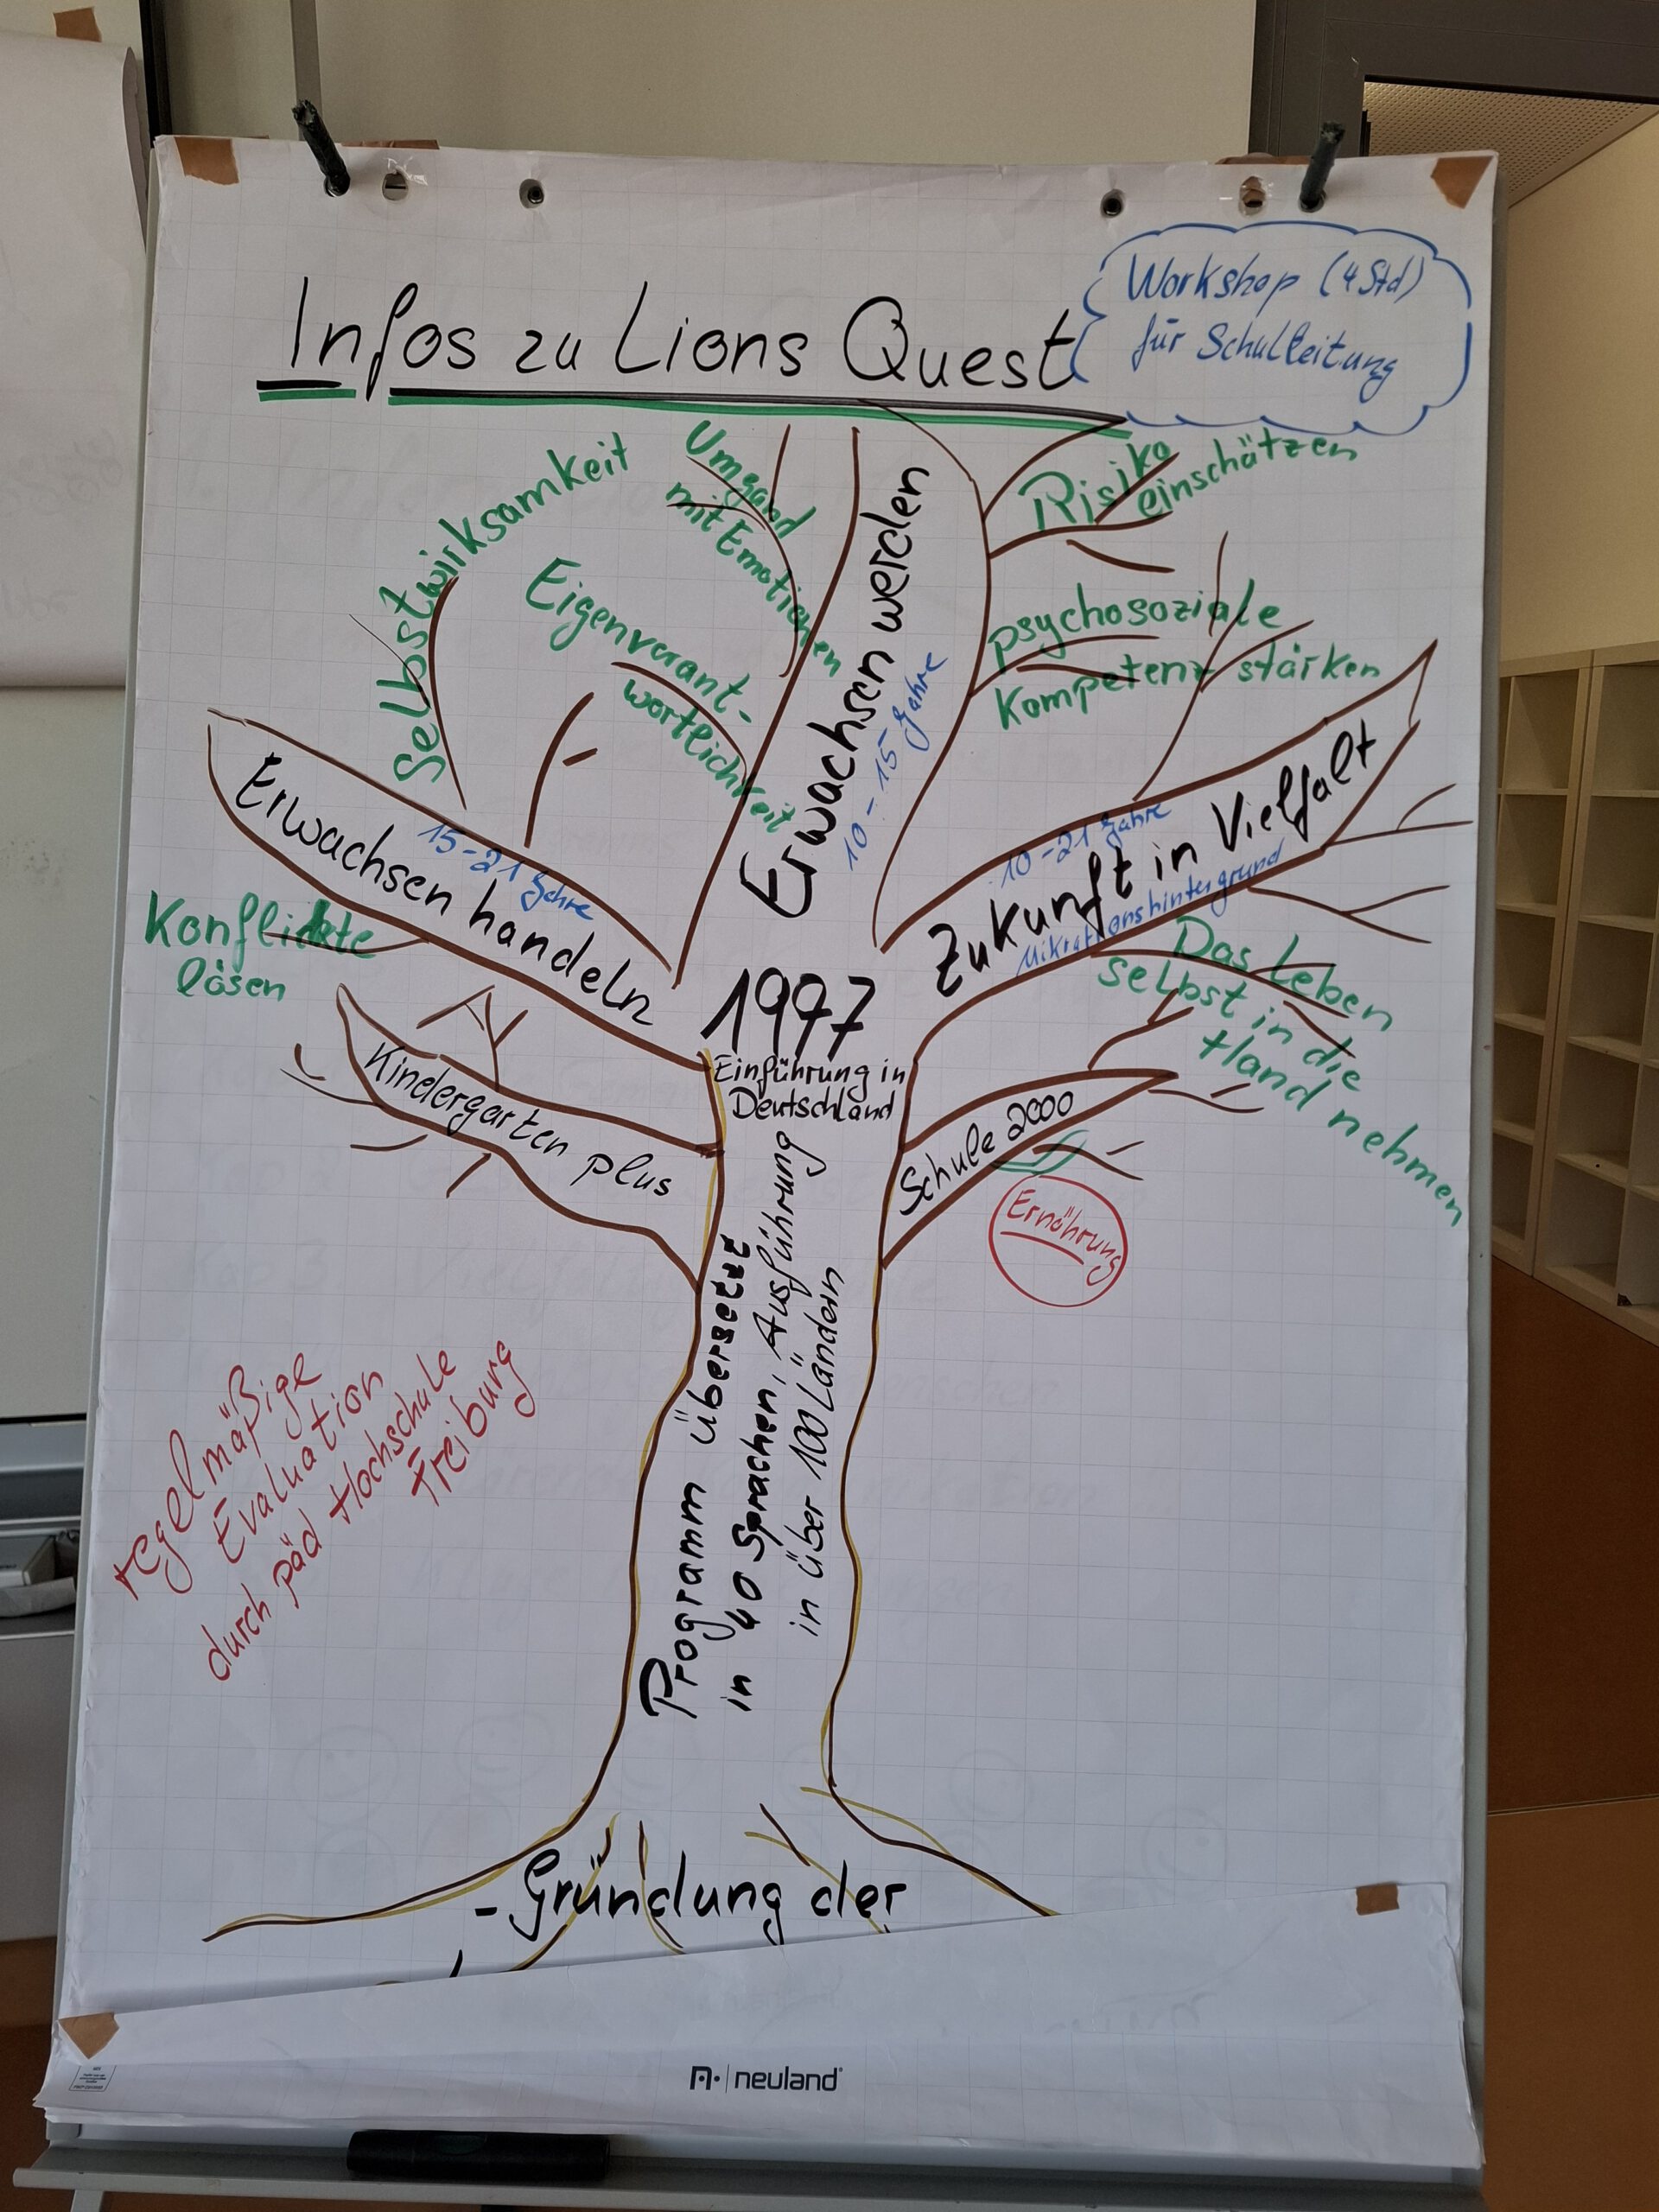 Infos zu Lions Quest
Workshop (4 Std)
für Schulleitung
Selbstwirksamkeit
Umgand
mit Emotionen
Eigenverant-
wortlichkeit
Erwachsen werden
10-15 Jahre
Risiko
einschätzen
psychosoziale
Kompetenz stärken
15-21 Jahre
Erwachsen handeln
10-21 Jahre
Zukunft in Vielfalt
Mikrationshintergrund
Konflikte
lösen
Das Leben
selbst in die
Hand nehmen
1997
Einführung in
Deutschland
Kindergarten plus
Schule 2000
Ernährung
Programm übersetzt
in 40 Sprachen, Ausführung
in über 100 Ländern
regelmäßige
Evaluation
durch päd Hochschule
Freiburg
- Gründung der
neuland